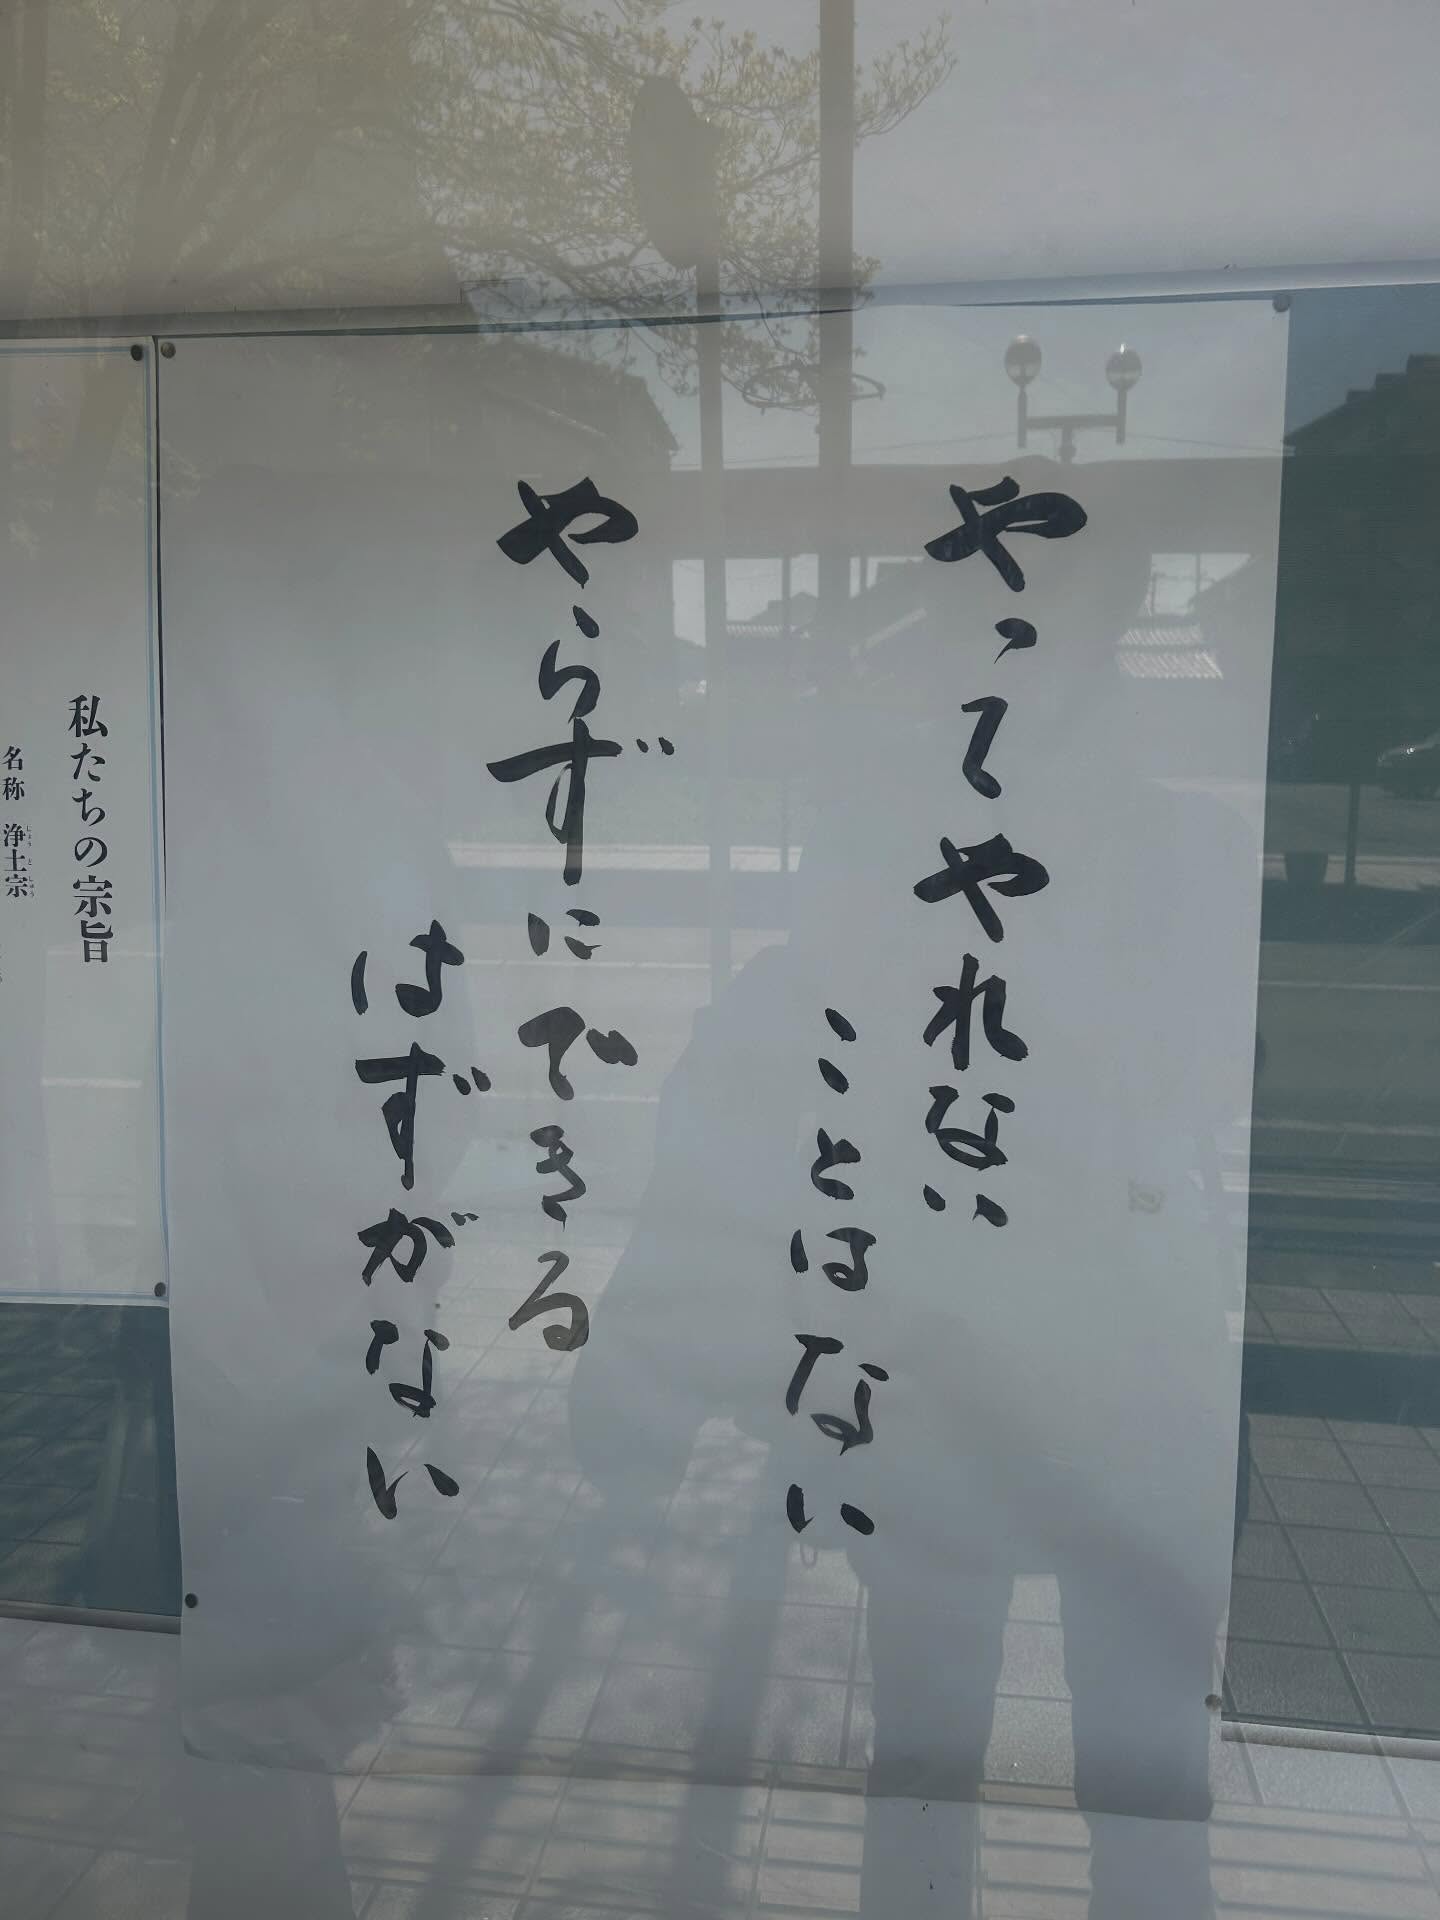 やってやれない
ことはない
やらずにできる
はずがない
私たちの宗旨
名称 浄土宗
じょうどしゅう